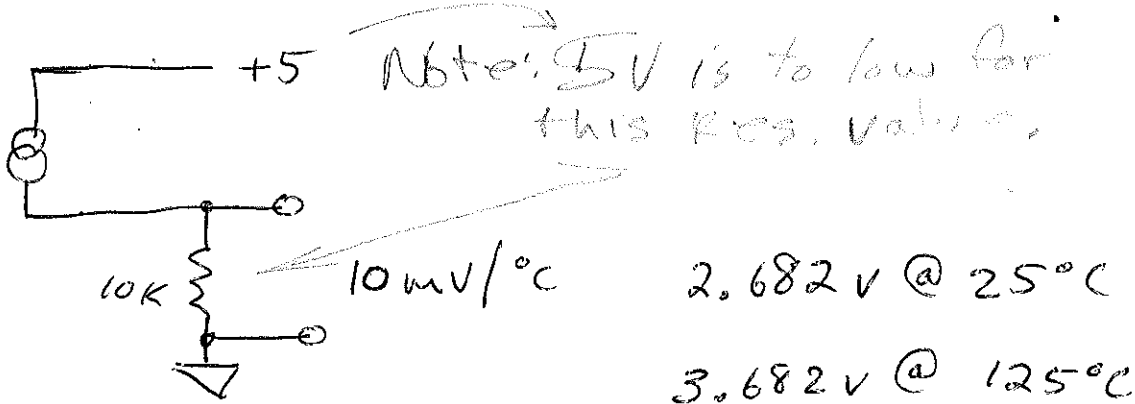 +5 Note: 5V is to low for
this Res. value.
10K
10mV/°C
2.682 v @ 25°C
3.682 v @ 125°C